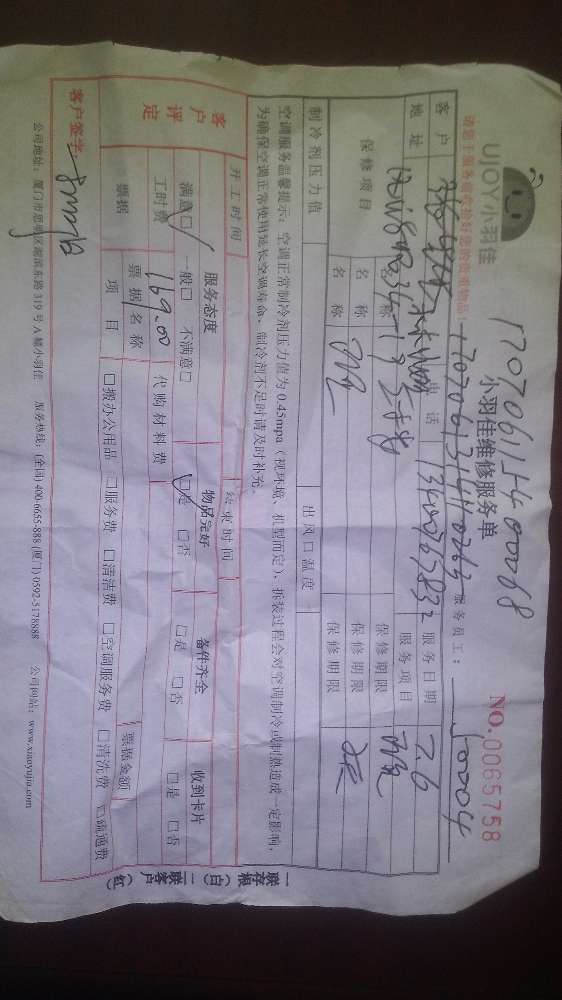 UJOY小羽佳
170706115400068
小羽佳维修服务单
NO.0065758
请您于服务前收拾好您的贵重物品:
服务员工:
客户
电话
服务日期 7.6
地址
服务项目
保修项目
名称
保修期限
名称
保修期限
名称
保修期限
制冷剂压力值
出风口温度
空调服务温馨提示:空调正常制冷剂压力值为0.45mpa(视环境、机型而定),拆装过程会对空调制冷或制热造成一定影响,
为确保空调正常使用延长空调寿命,制冷剂不足时请及时补充。
开工时间
结束时间
客户评定
服务态度
物品完好
备件齐全
收到卡片
满意□ 一般□ 不满意□
□是 □否
□是 □否
□是 □否
工时费 169.00
代购材料费
票据
票据名称
票据金额
项目
□搬办公用品 □服务费 □清洁费 □空调服务费 □清洗费 □疏通费
客户签字
公司地址:厦门市思明区湖滨东路319号A幢小羽佳 服务热线:(全国)400-6655-888 (厦门)0592-5178888 公司网站:www.xiaoyujia.com
一联存根(白) 一联客户(红)